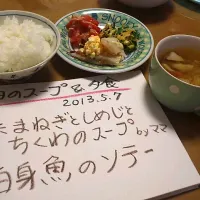 SNOOPY
日のスープ & 夕食
2013.5.7
たまねぎとしめじと
ちくわのスープ byママ
白身魚のソテー